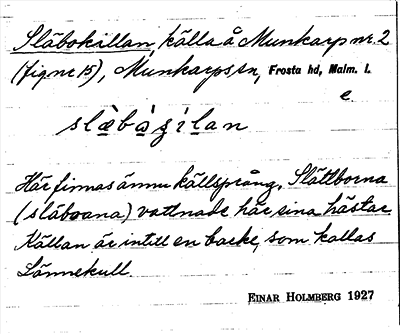 Släbokillan, källa å Munkarp nr. 2
(fig nr 15), Munkarps sn, Frosta hd, Malm. l.
e.
slä̀bàʒílan
Här finnas ännu källsprång. Slättborna
(släboana) vattnade här sina hästar.
Källan är intill en backe, som kallas
Lönnekull.
EINAR HOLMBERG 1927